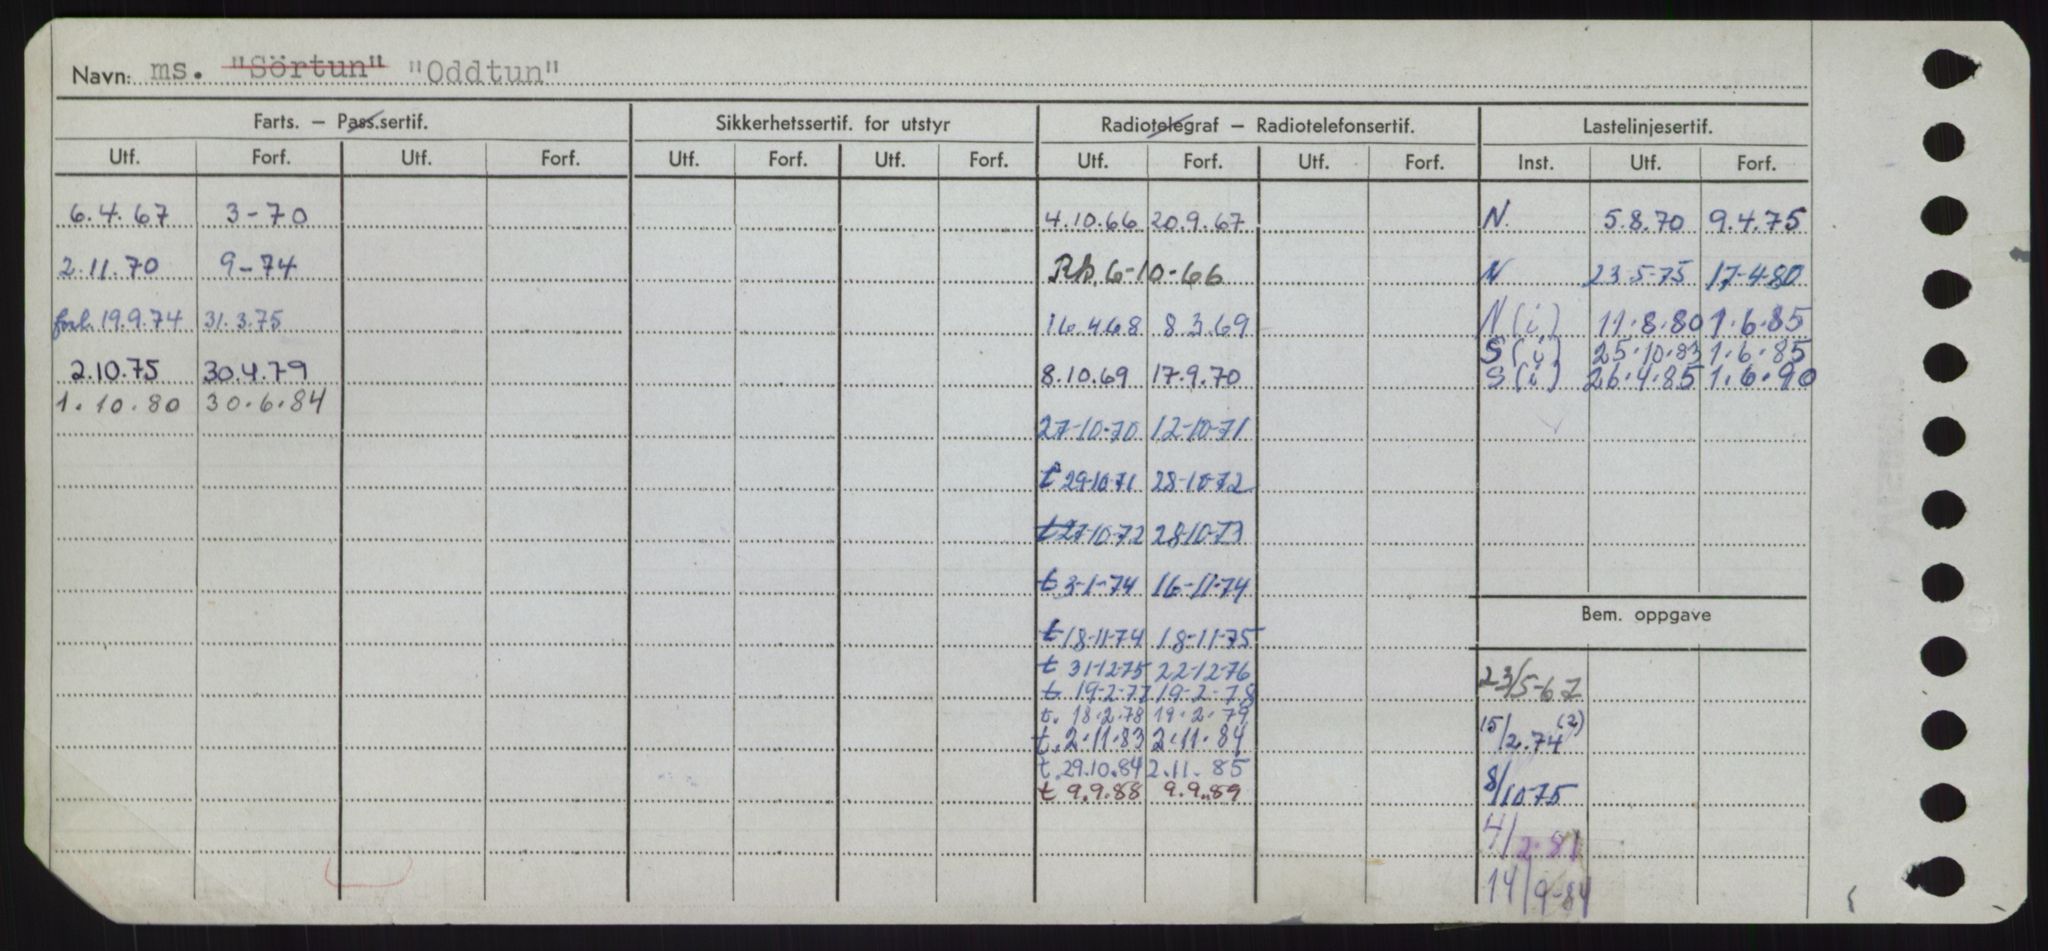 Navn: ms. "Sörtun" "Oddtun"
Farts. – Pass.sertif. Sikkerhetssertif. for utstyr Radiotelegraf – Radiotelefonsertif. Lastelinjesertif.
Utf. Forf. Utf. Forf. Utf. Forf. Utf. Forf. Utf. Forf. Utf. Forf. Inst. Utf. Forf.
6.4.67 3-70 4.10.66 20.9.67 N. 5.8.70 9.4.75
2.11.70 9-74 6-10-66 N 23-5-75 17-4-80
forl. 19.9.74 31.3.75 16.4.68 8.3.69 N(i) 11.8.80 1.6.85
S(i) 25.10.83 1.6.85
2.10.75 30.4.79 8.10.69 17.9.70 S(i) 26.4.85 1.6.90
1.10.80 30.6.84
27-10-70 12-10-71
t 29-10-71 28-10-72
t 27-10-72 28-10-73
t 3-1-74 16-11-74
Bem. oppgave
t 18-11-74 18-11-75
t 31-12-75 22-12-76
23/5-67
t 19-2-77 19-2-78
t. 18.2.78 19.2.79
15/2.74 (2)
t. 2.11.83 2.11.84
t. 29.10.84 2.11.85
t 9.9.88 9.9.89
8/10 75
4/2.81
14/9-84